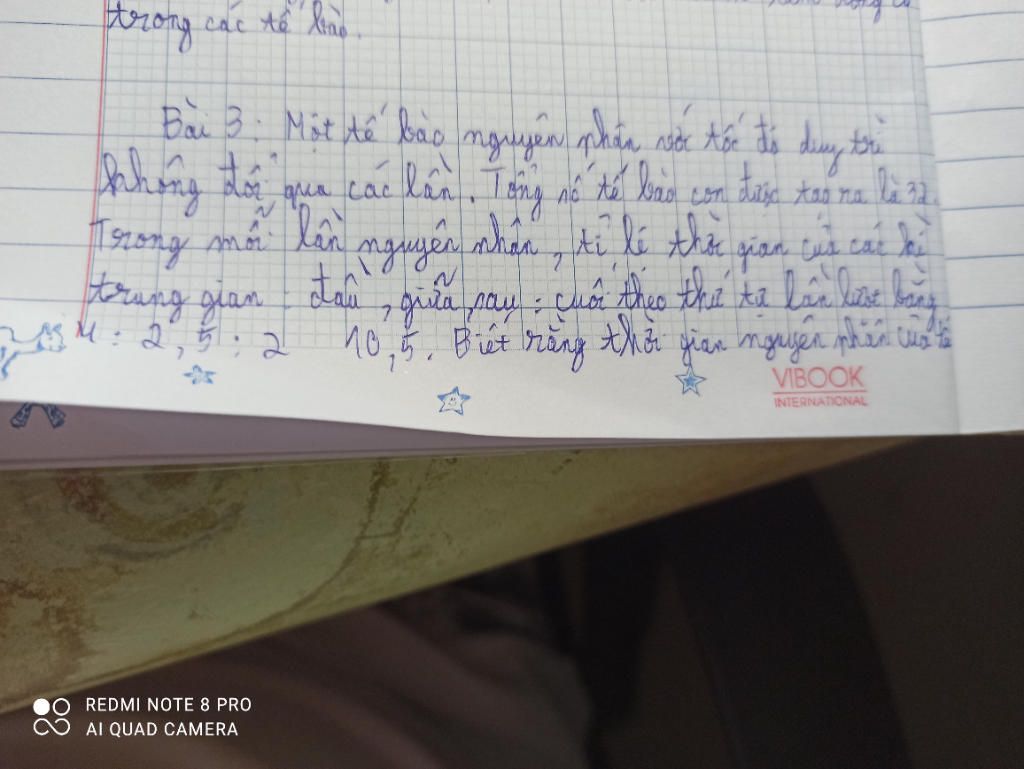 trong các tế bào.
Bài 3: Một tế bào nguyên phân với tốc độ duy trì
không đổi qua các lần. Tổng số tế bào con được tạo ra là 32.
Trong mỗi lần nguyên phân, tỉ lệ thời gian của các kì
trung gian : đầu, giữa, sau : cuối theo thứ tự lần lượt bằng
4 : 2,5 : 2 10,5. Biết rằng thời gian nguyên phân của tế
VIBOOK
INTERNATIONAL
REDMI NOTE 8 PRO
AI QUAD CAMERA